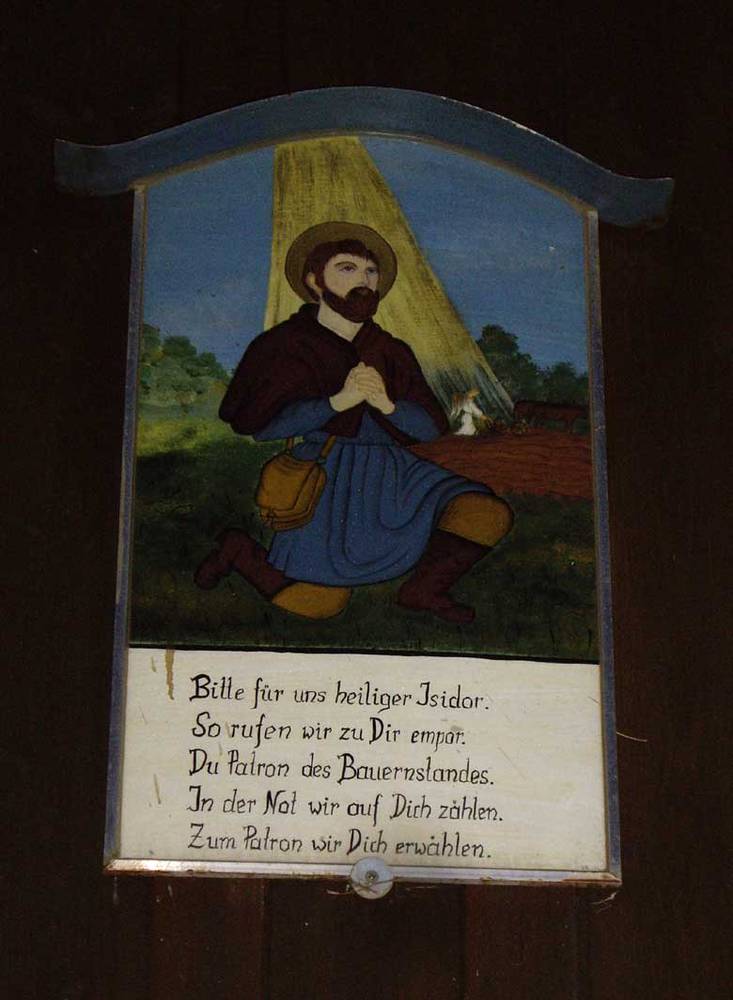 Bitte für uns heiliger Isidor.
So rufen wir zu Dir empor.
Du Patron des Bauernstandes.
In der Not wir auf Dich zählen.
Zum Patron wir Dich erwählen.